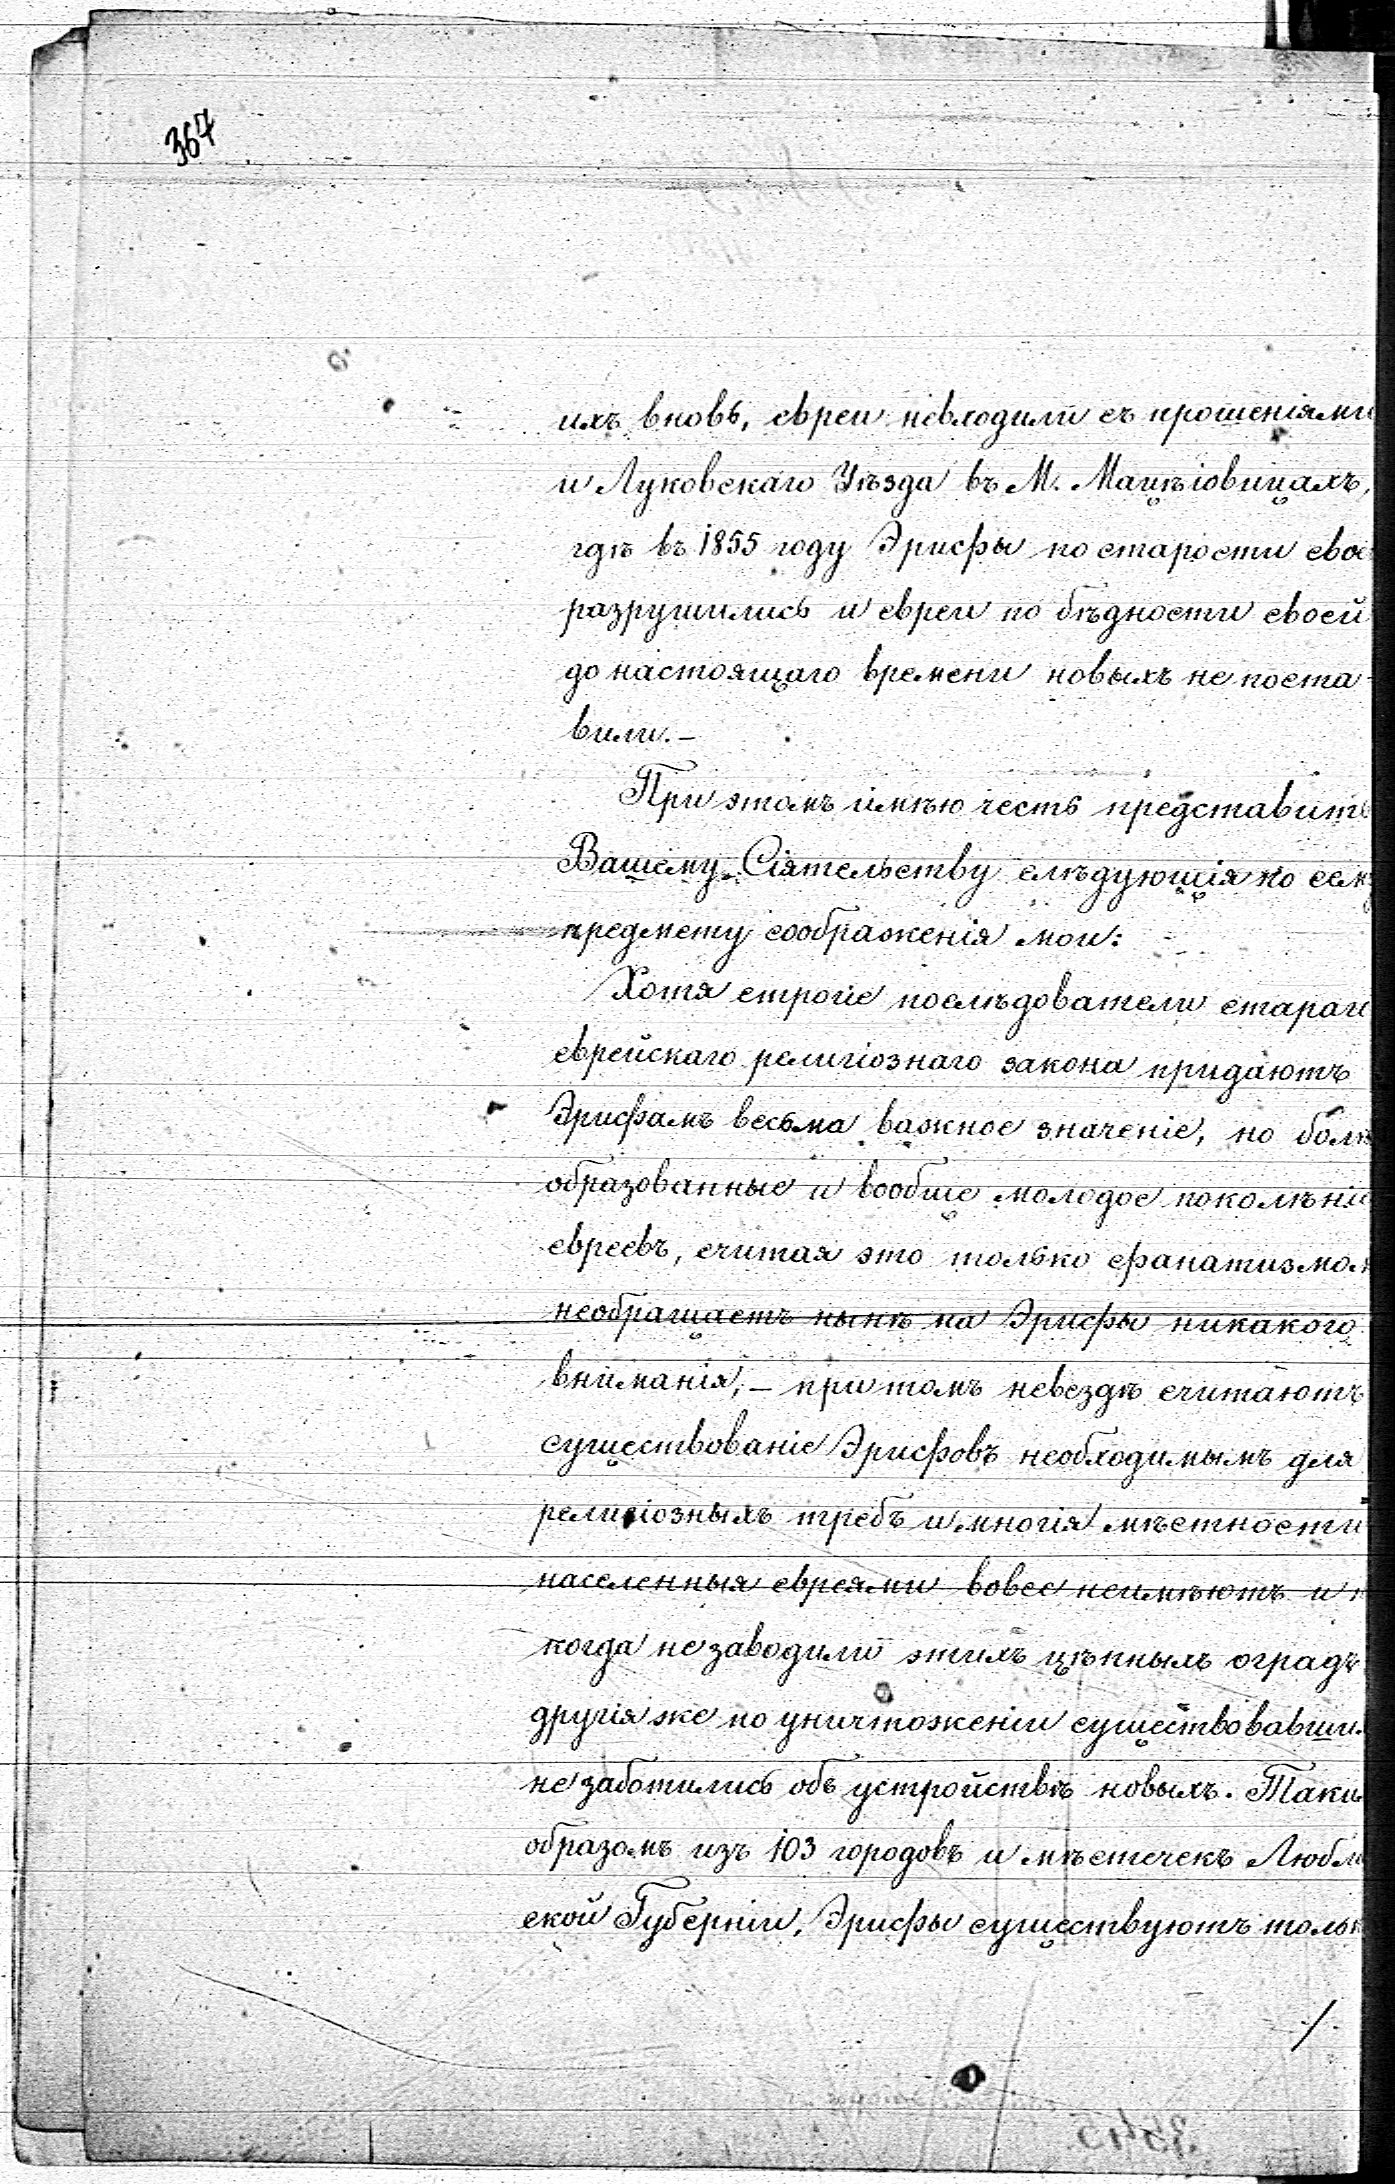 367
ихъ вновь, евреи невходили съ прошеніями
и Луковскаго Уѣзда въ М. Мацѣіовицахъ,
гдѣ въ 1855 году Эрифы по старости свое
разрушились и евреи по бѣдности своей
до настоящаго времени новыхъ не поста-
вили.–
При этомъ имѣю честь представить
Вашему Сіятельству слѣдующія по сему
предмету соображенія мои:
Хотя строгіе послѣдователи стараго
еврейскаго религіознаго закона придаютъ
Эрифамъ весьма важное значеніе, но болѣ
образованные и вообще молодое поколѣніе
евреевъ, считая это только фанатизмом
необращаетъ нынѣ на Эрифы никакого
вниманія;– притомъ невездѣ считаютъ
существованіе Эрифовъ необходимымъ для
религіозныхъ требъ и многія мѣстности
населенныя евреями вовсе неимѣютъ и н
когда незаводили этихъ цѣнныхъ оградъ
другія же по уничтоженіи существовавши
не заботились объ устройствѣ новыхъ. Таки
образомъ изъ 103 городовъ и мѣстечекъ Любли
ской Губерніи, Эрифы существуютъ тольк
./.